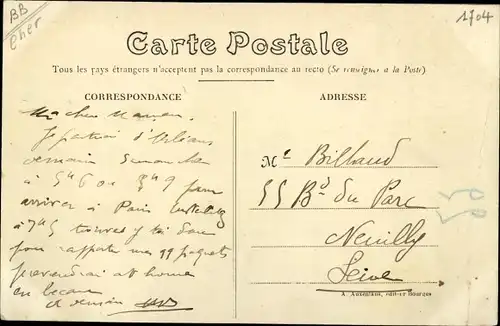 BB
Cher
1704
Carte Postale
Tous les pays étrangers n'acceptent pas la correspondance au recto (Se renseigner à la Poste)
CORRESPONDANCE
ADRESSE
Ma chère Maman
Je partirai d'Orléans
demain Dimanche
à 5h 6 ou 8h 9 pour
arriver à Paris
à 7h 5
pour rapporter mes 11 paquets
je prendrai at home
à demain
Mr Billaud
55 Bd du Parc
Neuilly
Seine
A. Auxenfans, édit-r Bourges